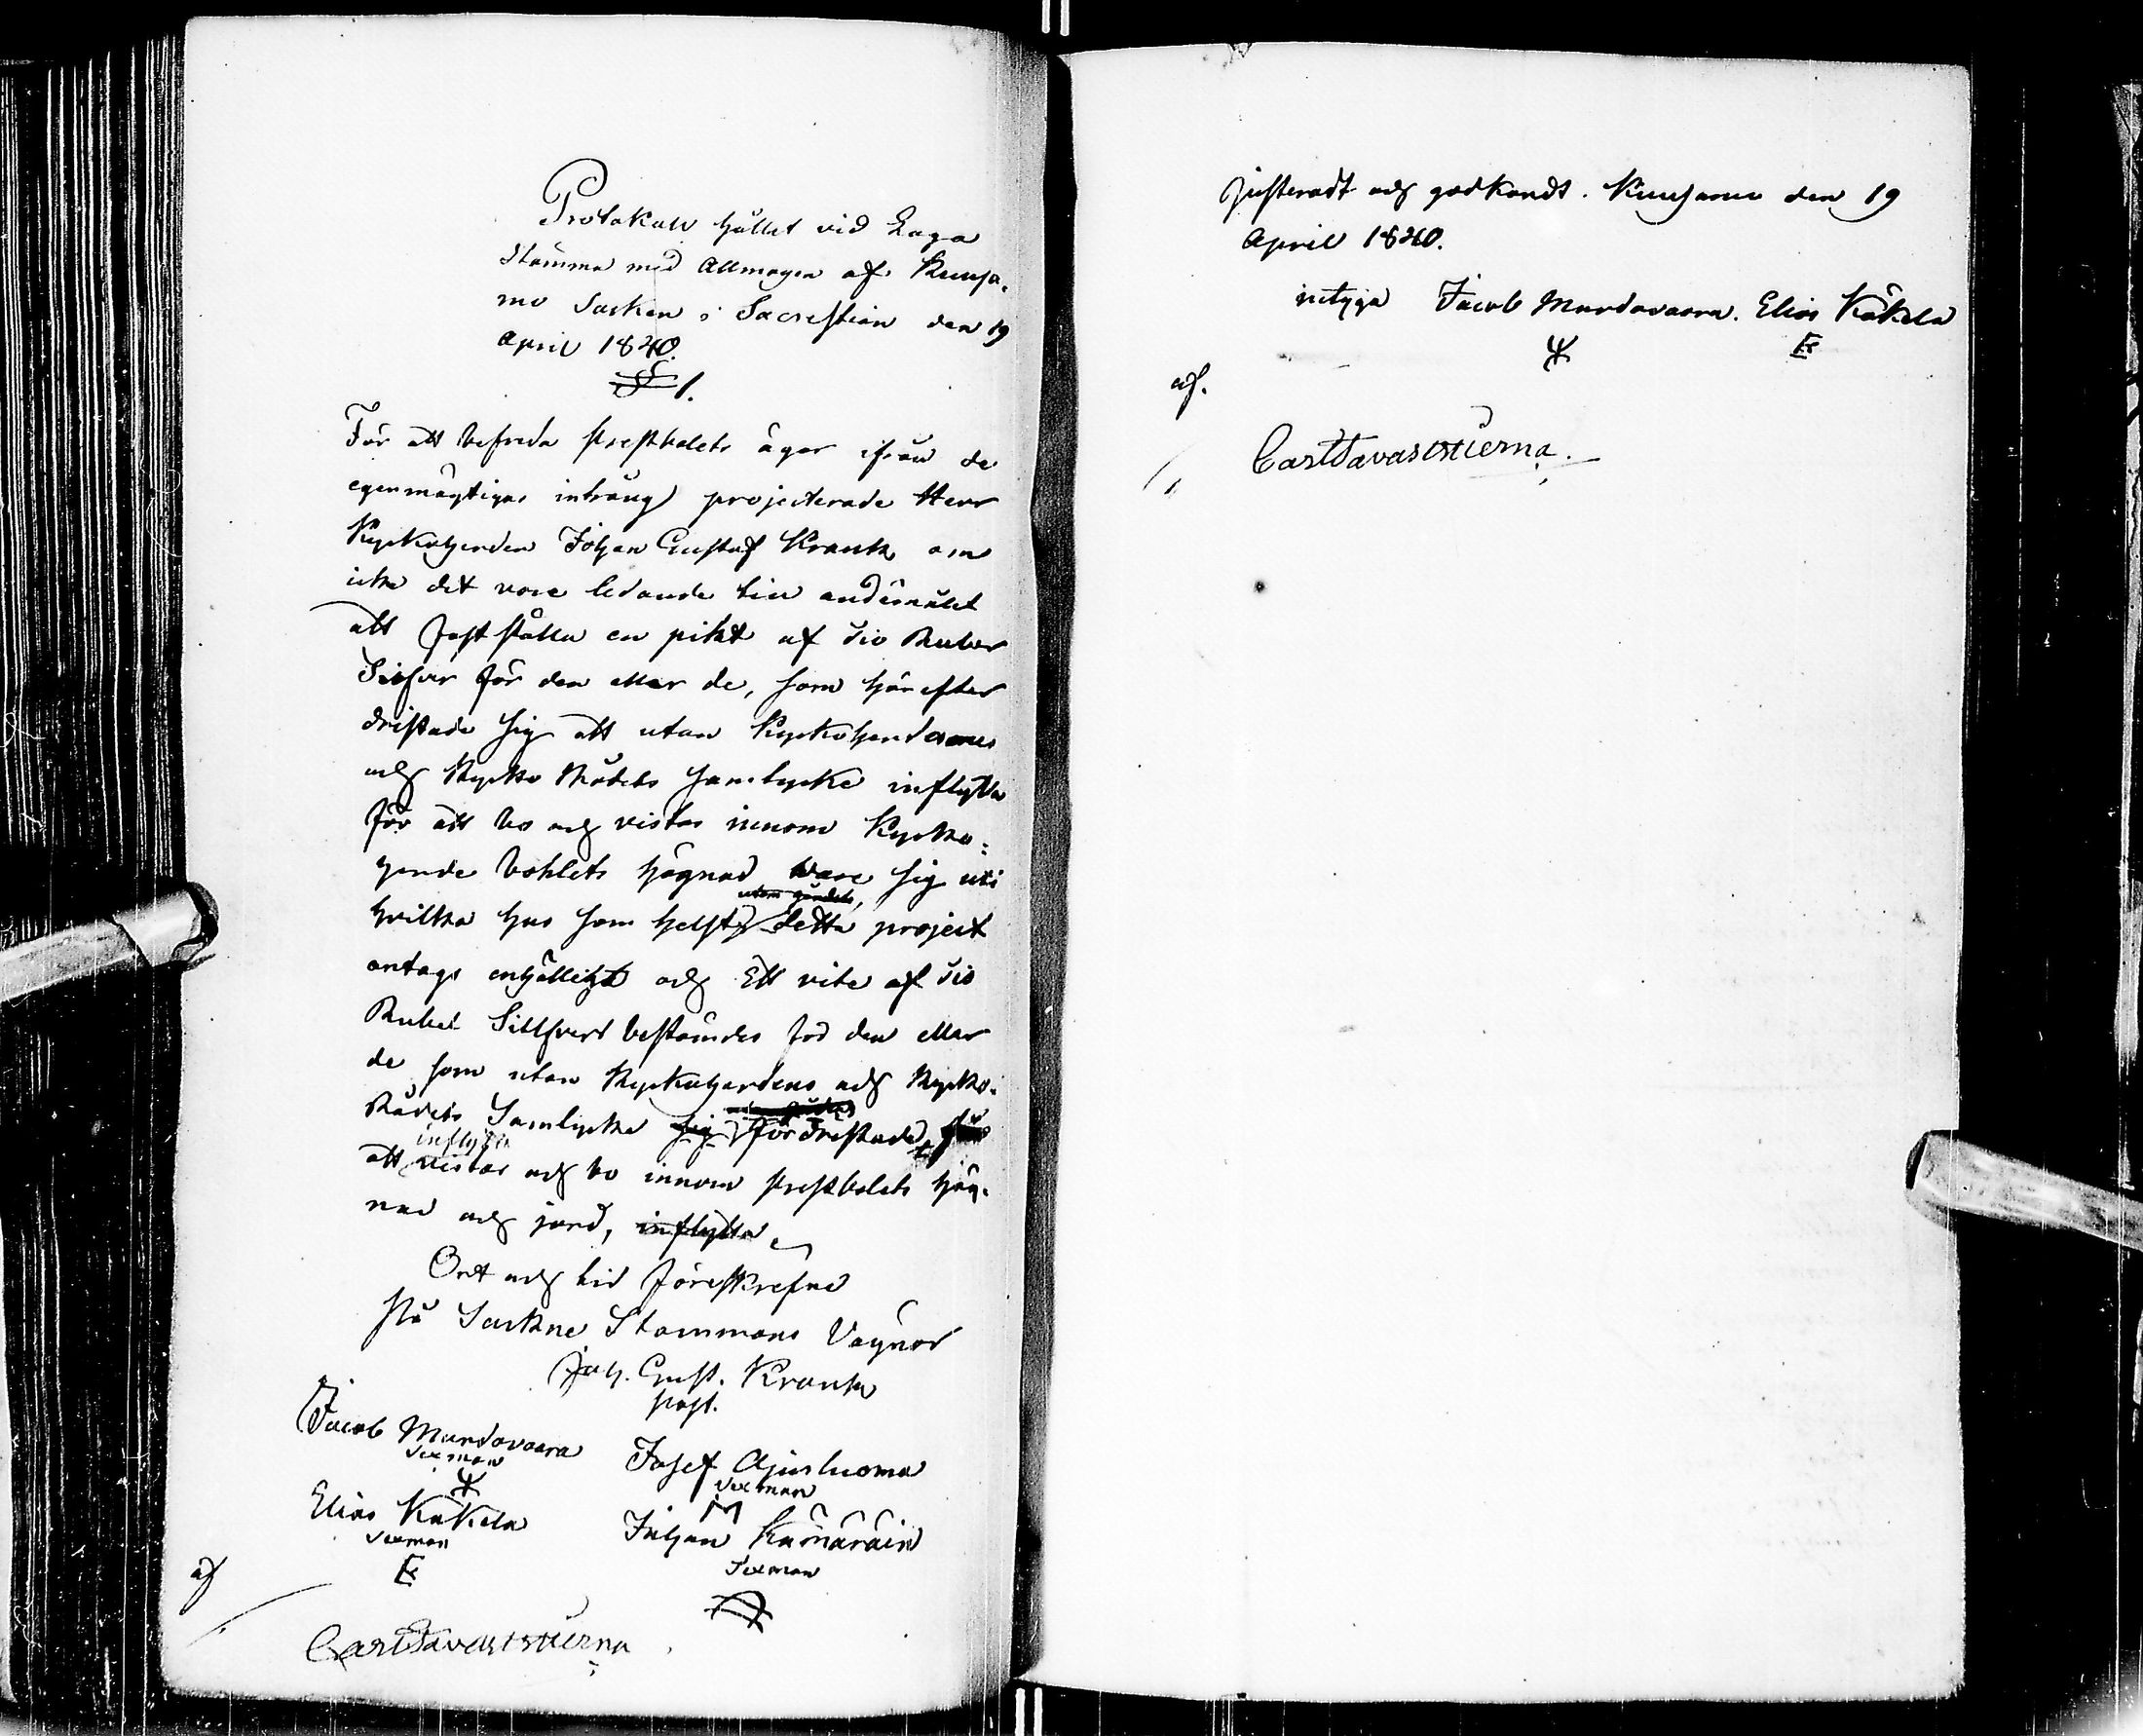 Protokoll hållet vid Laga
Stämma med Allmogen af Kuusa-
mo Socken i Sacrestian den 19
April 1840.
§ 1.
För att befreda prestbolets ägor ifrån de
egenmägtigas intrång projecterade Herr
Kyrkoherden Johan Gustaf Krank om
icke det vore ledande till ändamålet
att fastställa en plikt af tio Rubler
Silfver för den eller de, som härefter
dristade sig att utan Kyrkoherdens
och Kyrko Rådets samtycke inflytta
för att bo och vistas innom Kyrko-
herde bohlets hägnad vare sig uti
utom gärdet,
hvilka hus som helst, detta project
antogs enhälligt och Ett vite af tio
Rubel Sillfver bestämdes för den eller
de som utan Kyrkoherdens och Kyrko-
Rådets Samtycke sig fördristade
inflytta
att vistas och bo innom prestbolets häg-
nad och jord, inflytta
Ort och tid föreskrefne
På Sockne Stämmans Vägnar
Joh. Gust. Krank
past.
Jacob Murdovaara
Sexman
Josef Ajusluoma
Sexman
Elias Käkelä
Sexman
Johan Kämäräin
Sexman
Carl Tavaststierna
Justeradt och godkändt. Kuusamo den 19
April 1840.
intyga Jacob Murdovaara. Elias Käkelä
Carl Tavaststierna.